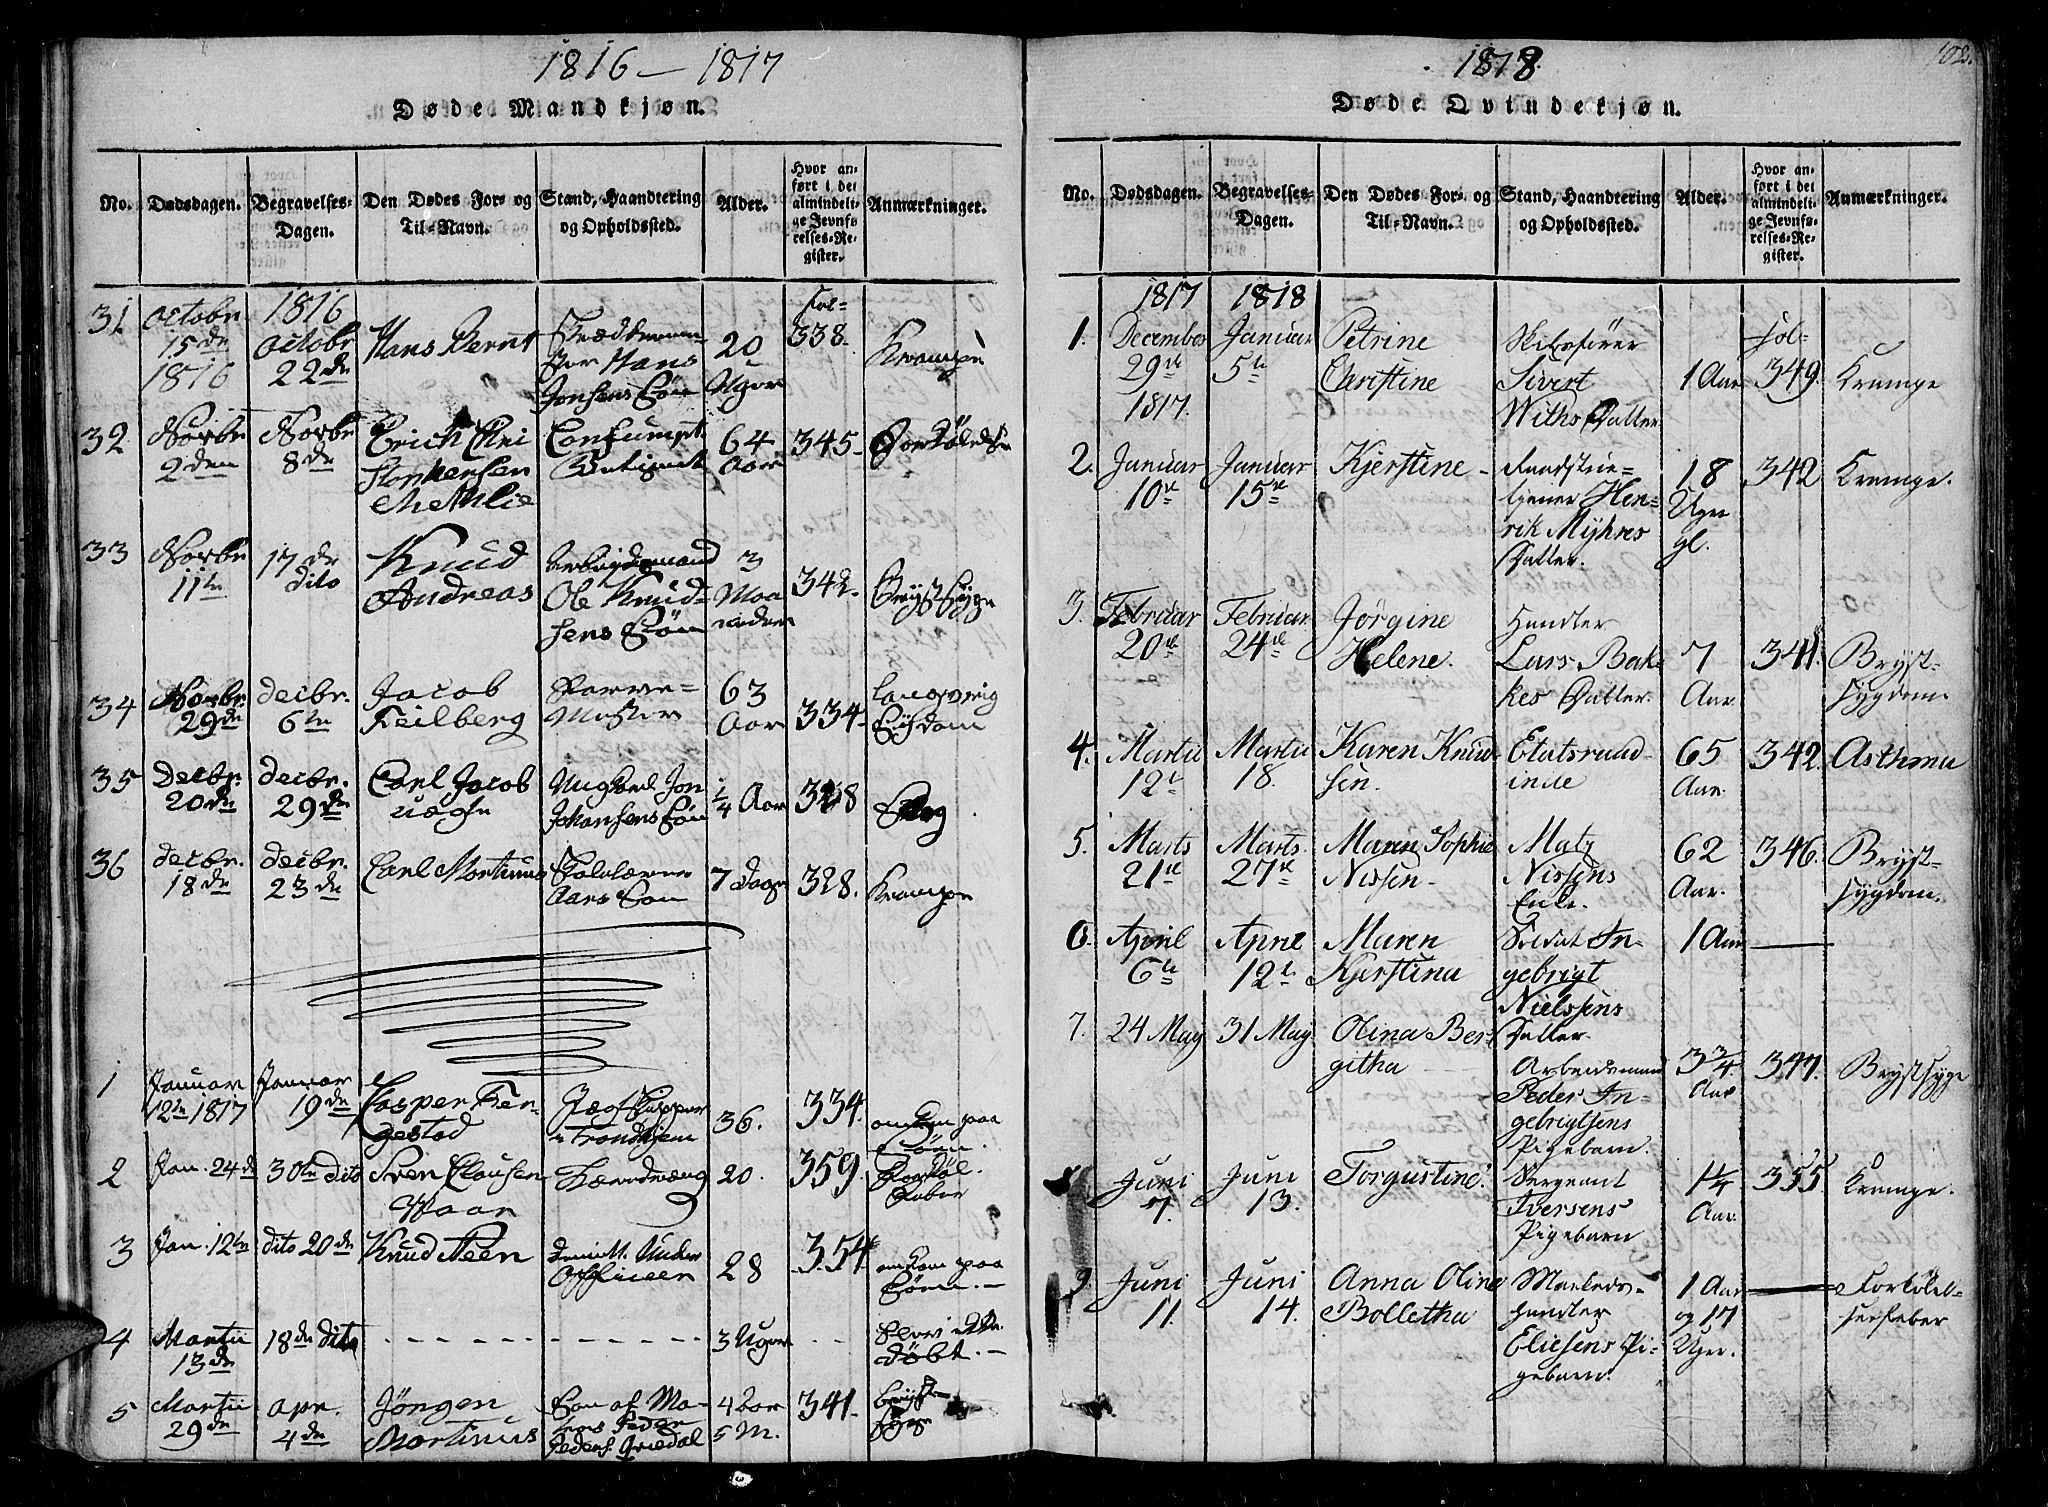 1816 — 1817
Døde Mandkjøn.
No. Dødsdagen. Begravelses-Dagen. Den Dødes For- og Til-Navn. Stand, Haandtering og Opholdssted. Alder. Hvor anført i det almindelige Jevnførelses-Register. Anmærkninger.
31 octobr 15de 1816 1816 octobr 22de Hans Bernt Hans Jonsens Søn 20 Uger Fol- 338. Krampe
32 Novbr 2den Novbr 8de Erich 64 Aar 345-
33 Novbr 11te 17de dito Knud Andreas Arbeidsmand Ole Knudsens Søn 3 Maaneder 342- Brystsyge
34 Novbr. 29de decbr. 6te Jacob Feilberg 63 Aar 334- langvarig Sygdom
35 Decbr. 20de decbr. 29de Carl Jacob uægte Jon Johansens Søn 1/4 Aar 328 Slag
36 decbr. 18de decbr. 23de Carl Martinus Aars Søn 7 Dage 328. Krampe
1 Januar 12te 1817 Januar 19de Casper Fergestad Trondhjem 36. 334. omkom paa Søen.
2 Jan. 24de 30te dito Sven Clausen 20. 359.
3 Jan. 12te dito 20de Knud Steen Under Officeer 28 354 omkom paa Søen. —
4 Martii 13de 18de dito - - - - 3 Uger - - døbt. —
5 Martii 29de apr. 4de Jörgen Martinus Søn af Peder 4 aar 5 M. 341. bryst syge
1818. 102.
Døde Qvindekjøn.
No. Dødsdagen. Begravelses-Dagen. Den Dødes For- og Til-Navn. Stand, Haandtering og Opholdssted. Alder. Hvor anført i det almindelige Jevnførelses-Register. Anmærkninger.
1. 1817 December 29de 1817. 1818 Januar 5te Petrine Christine Skibsfører Sivert Withs Datter 1 Aar fol- 349. Krampe
2. Januar 10de Januar 15de Kjerstine - Henrik Myhres Datter. 18 Uger gl. 342 Krampe.
3. Februar 20de Februar 24de Jørgine Helene. Handler Lars Bakkes Datter. 7 Aar. 341. Brystsygdom
4. Martii 12te Martii 18. Karen Knudsen. Etatsraadinde 65 Aar. 342. Asthma
5. Marts 21de Marts. 27de Maren Sophie Nissen - Matz Nissens Enke. 62 Aar. 346. Brystsygdom.
6. April 6te April 12te Maren Kjerstina Soldat Ingebrigt Nielssens Datter. 1 Aar —
7. 24 May 31 May Olina Bergitha Arbeidsmand Peder Ingebrigtsens Pigebarn. 3 3/4 Aar 347. Brystsyge
Juni 7. Juni 13. Torgustine. Sergeant Iversens Pigebarn 1 1/4 Aar. 355. Krampe.
9. Juni 11. Juni 14. Anna Oline Bolletha Handler Eliesens Pigebarn. 1 Aar og 17 Uger. — Forkølelsesfeber